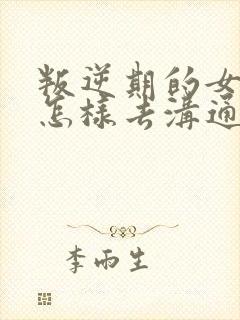 叛逆期的女
怎樣去溝通
李雨生